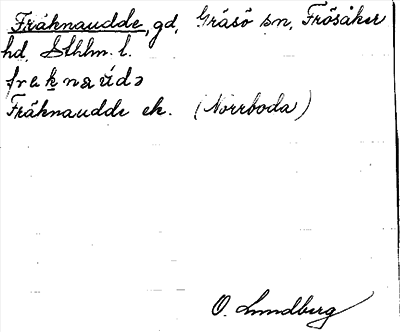 Fräknaudde, gd, Gräsö sn, Frösåker
hd, Sthlm. l.
Fräknaudde ek. (Norrboda)
O. Lundberg